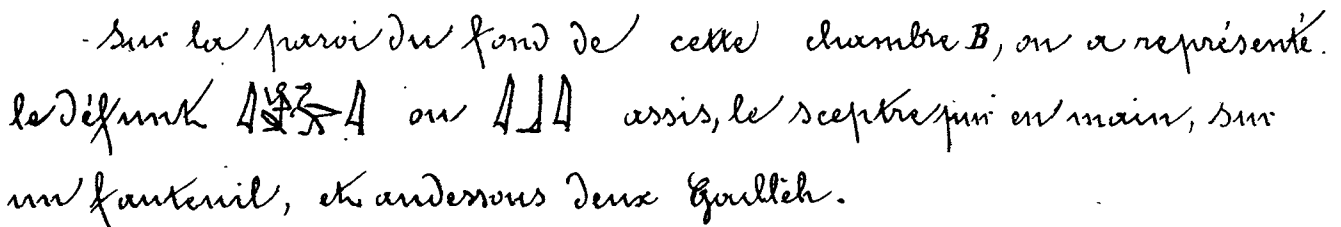 Sur la paroi du fond de cette chambre B, on a représenté
le défunt ou 𓇋𓃀𓇋 assis, le sceptre en main, sur
un fauteuil, et au dessous deux Goullèh.